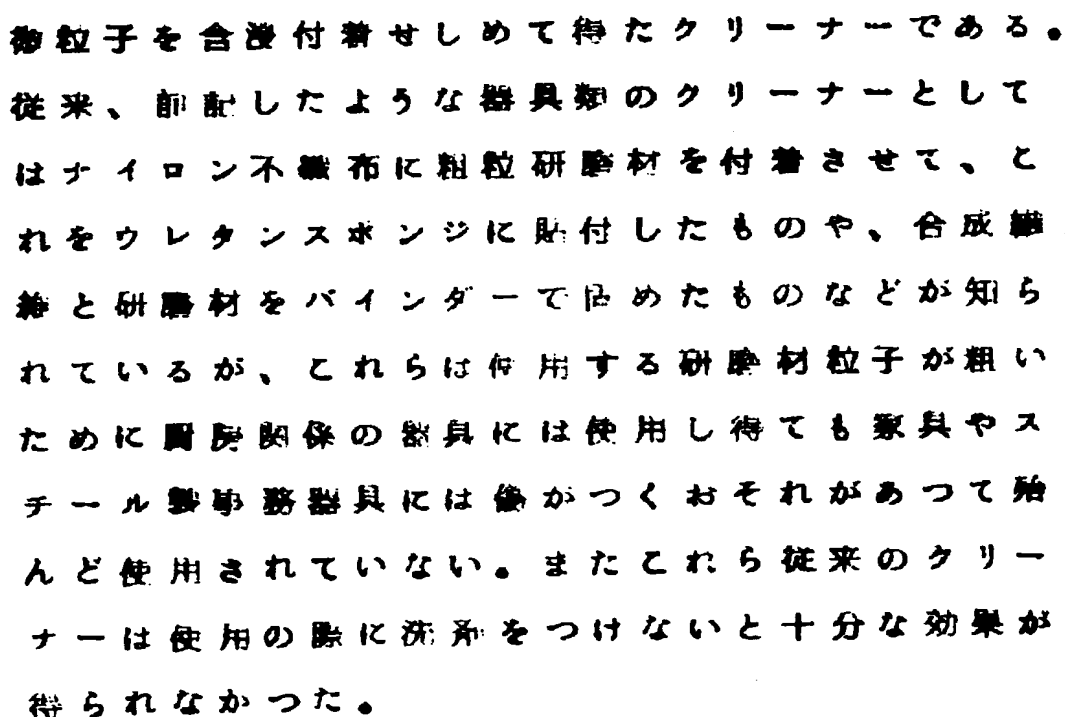 微粒子を含浸付着せしめて得たクリーナーである。
従来、前記したような器具類のクリーナーとして
はナイロン不織布に粗粒研磨材を付着させて、こ
れをウレタンスポンジに貼付したものや、合成繊
維と研磨材をバインダーで固めたものなどが知ら
れているが、これらは使用する研磨材粒子が粗い
ために厨房関係の器具には使用し得ても家具やス
チール製事務器具には傷がつくおそれがあつて殆
んど使用されていない。またこれら従来のクリー
ナーは使用の際に洗剤をつけないと十分な効果が
得られなかつた。